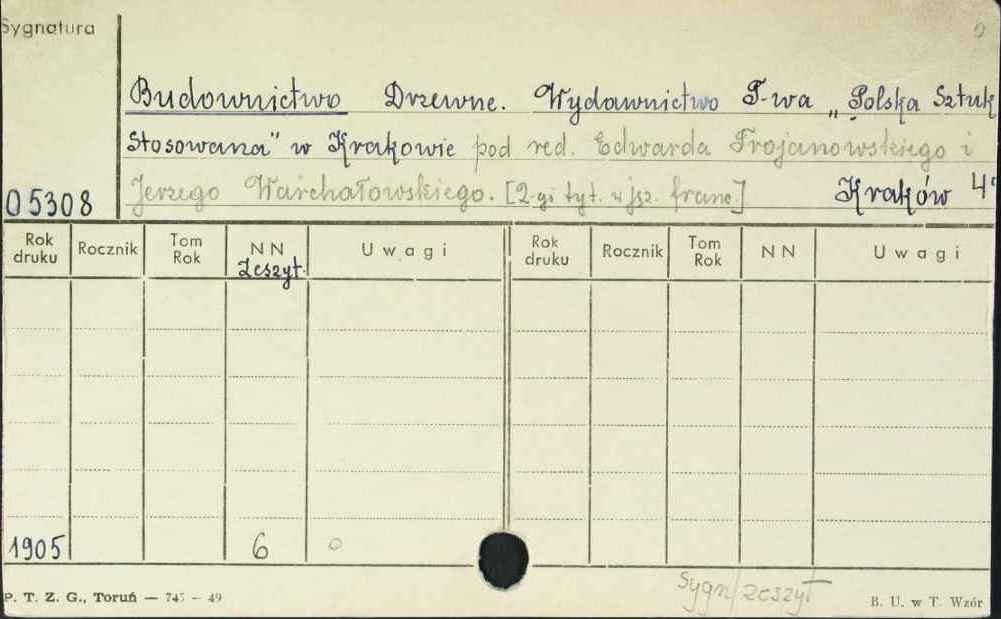 Sygnatura
Budownictwo Drzewne. Wydawnictwo T-wa „Polska Sztuk
Stosowana" w Krakowie pod red. Edwarda Trojanowskiego i
Jerzego Warchałowskiego. [2-gi tyt. w jęz. franc.] Kraków 4°
05308
Rok druku Rocznik Tom Rok NN Uwagi Rok druku Rocznik Tom Rok NN Uwagi
Zeszyt.
1905 6 o
Sygn/zeszyt
P. T. Z. G., Toruń — 745 — 49 B. U. w T. Wzór